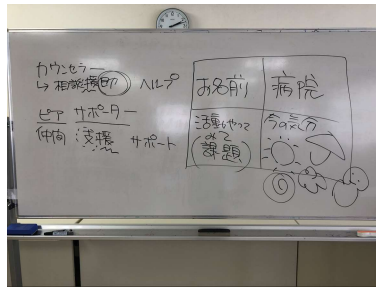 カウンセラー
↳ 相談援助 ヘルプ
ピア サポーター
仲間 支援 サポート
お名前 病院
活動をやって
みて
(課題)
今の気分